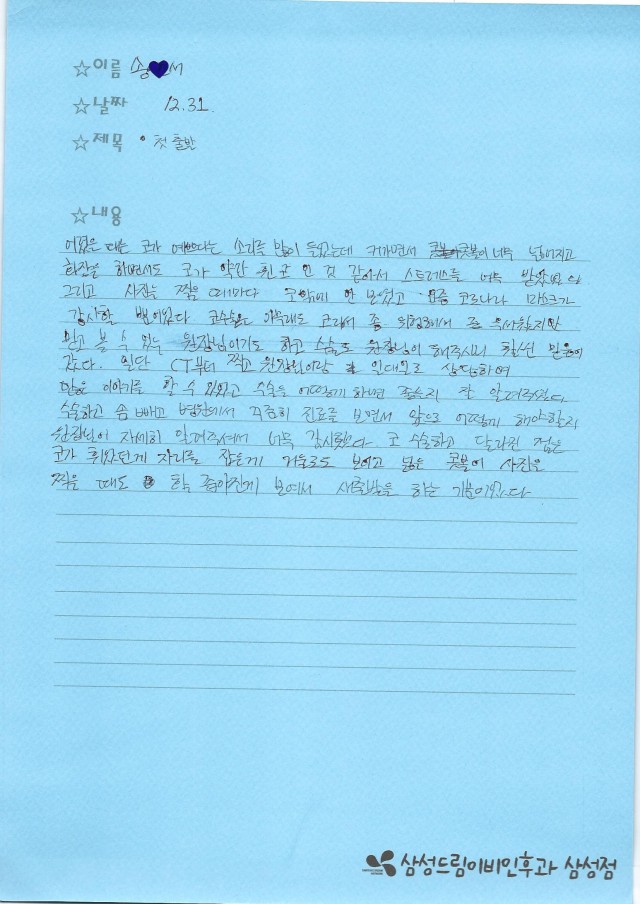 ☆이름 송♥서
☆날짜 12.31.
☆제목 • 첫 출발
☆내용
어렸을 때는 코가 예쁘다는 소리를 많이 들었는데 커가면서 콧볼이 너무 넓어지고
화장을 하면서도 코가 약간 휜 코인 것 같아서 스트레스를 너무 받았었다
그리고 사진을 찍을 때마다 코밖에 안 보였고 요즘 코로나라 마스크가
감사할 뿐이었다 코수술은 아무래도 코라서 좀 위험해서 좀 무서웠지만
믿고 볼 수 있는 원장님이기도 하고 수술도 원장님이 해주시니 훨씬 믿음이
갔다. 일단 CT부터 찍고 원장님이랑 일대일로 상담하며
많은 이야기를 할 수 있었고 수술을 어떻게 하면 좋을지 잘 알려주셨다
수술하고 솜 빼고 병원에서 꾸준히 진료를 보면서 앞으로 어떻게 해야할지
원장님이 자세히 알려주셔서 너무 감사했다 코 수술하고 달라진 점은
코가 휘었던게 자리를 잡은게 거울로도 보이고 넓은 콧볼이 사진을
찍을 때도 확 좋아진게 보여서 새출발을 하는 기분이었다
삼성드림이비인후과 삼성점